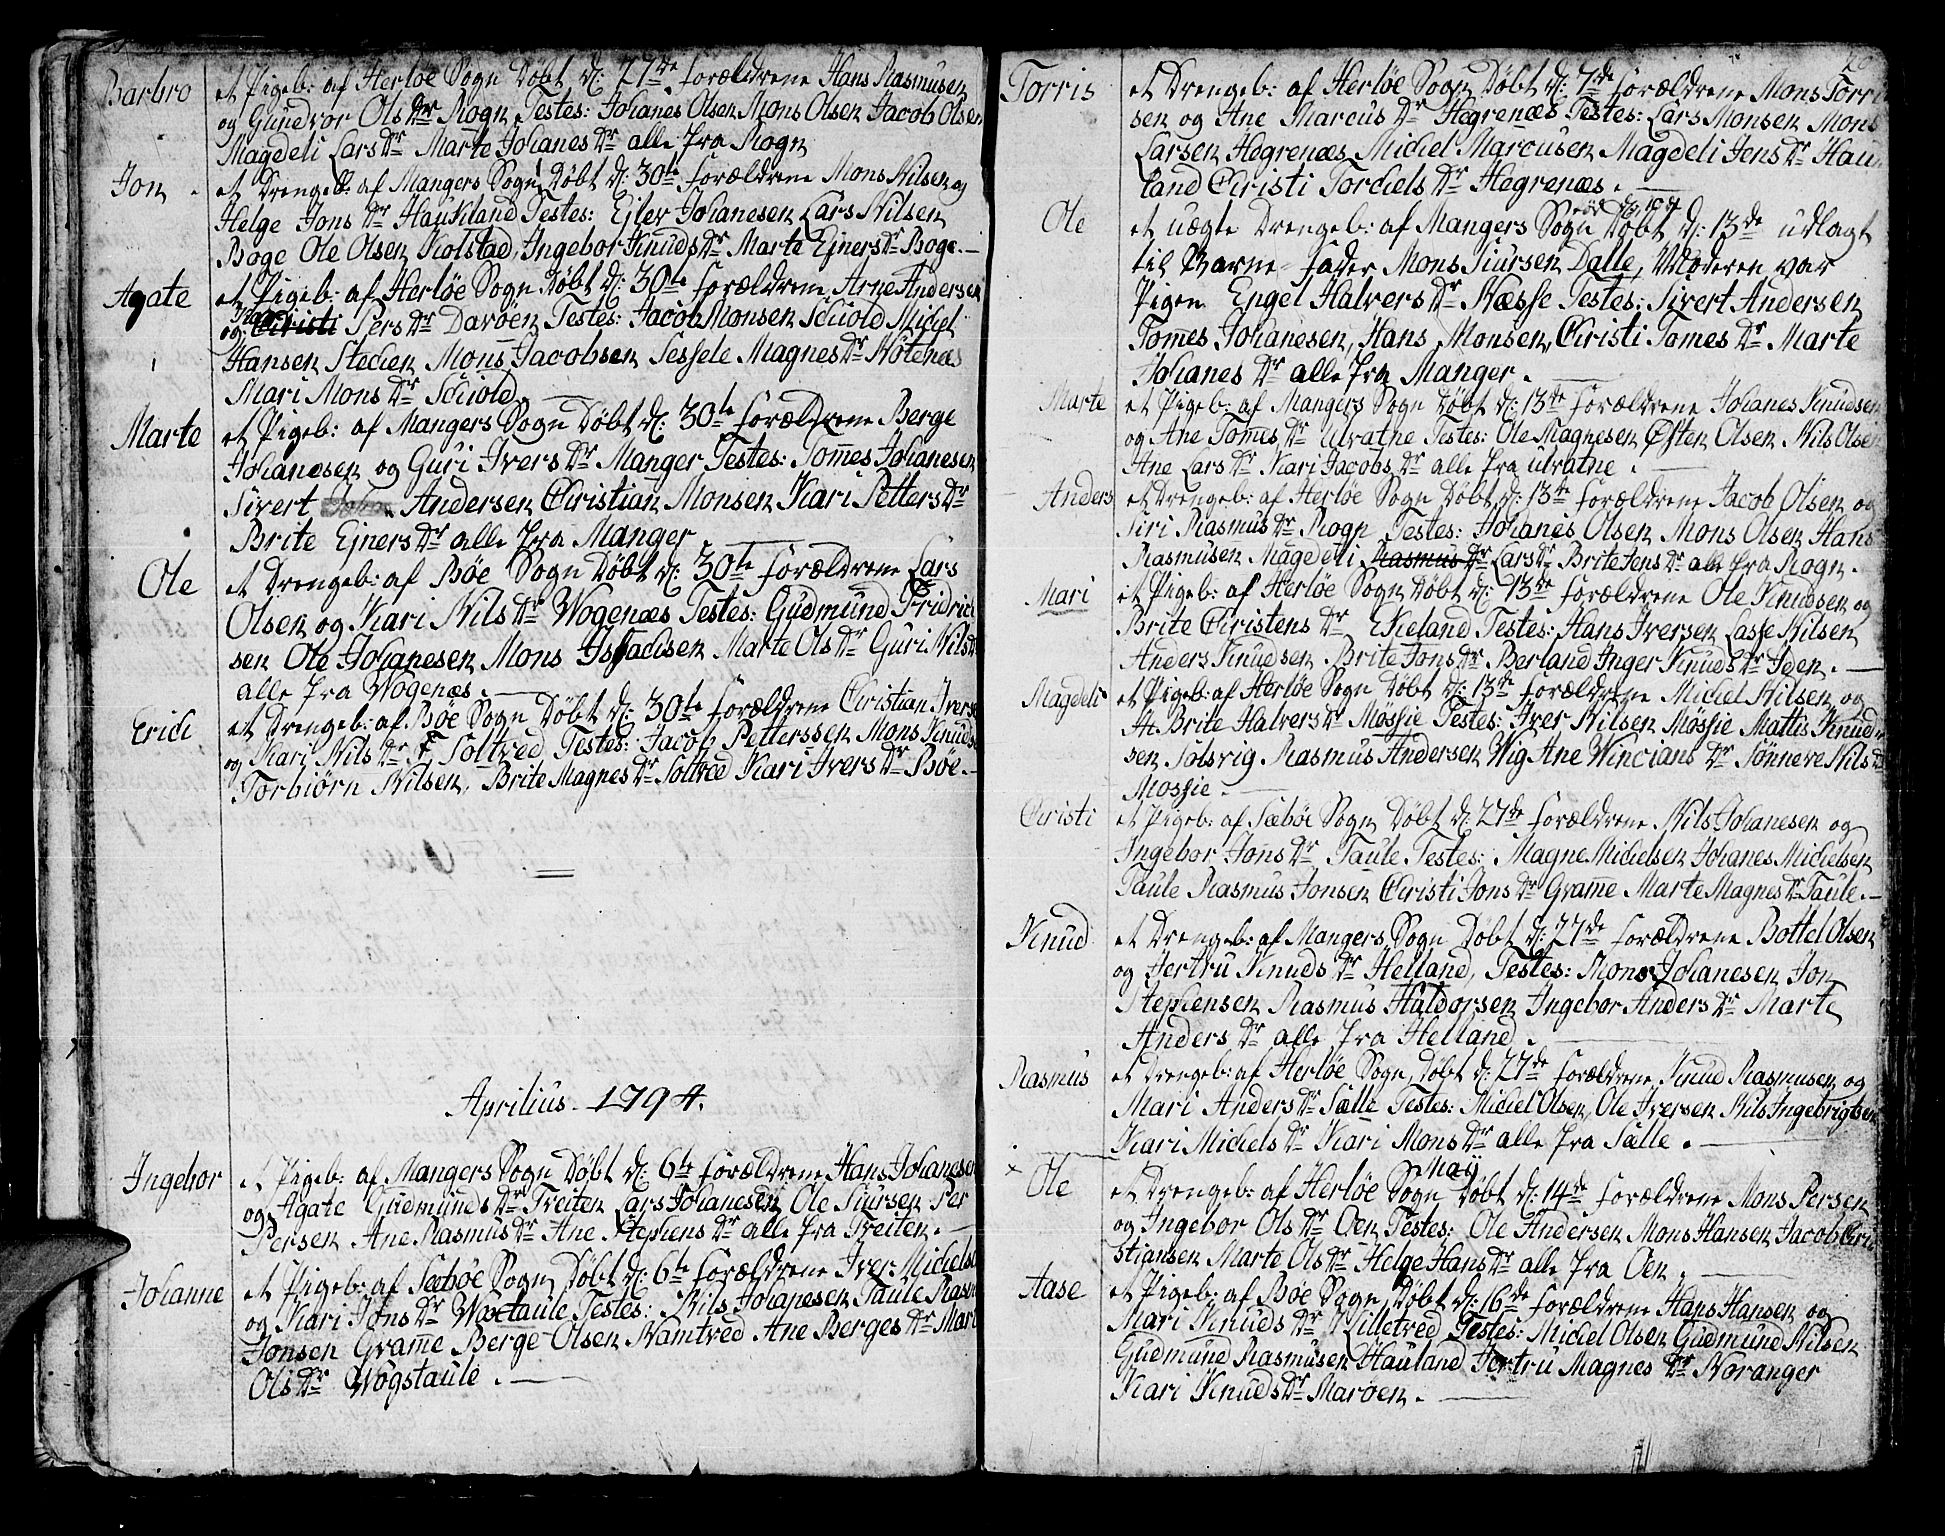 Barbro
et Pigeb: af Herløe Sogn Døbt d: 27de forældrene Hans Rasmusen
og Gundvor Ols Dr Rogn Testes: Johanes Olsen Mons Olsen Jacob Olsen
Magdeli Lars Dr Marte Johanes Dr alle fra Rogn
Jon
et Drengeb: af Mangers Sogn Døbt d: 30te forældrene Mons Nilsen og
Helge Jons Dr Haukland Testes: Ejler Johanesen Lars Nilsen
Boge Ole Olsen Kolstad, Ingebor Knuds Dr Marte Ejners Dr Boge.
Agate
et Pigeb: af Herløe Sogn Døbt d: 30te forældrene Arne Andersen
og Christi Pers Dr Davøen Testes: Jacob Monsen Schiold Michel
Hansen Stechen Mons Jacobsen Sessele Magnes Dr Nøtenæs
Mari Mons Dr Schiold.
Marte
et Pigeb: af Mangers Sogn Døbt d: 30te forældrene Berge
Johanesen og Guri Ivers Dr Manger Testes: Tomes Johanesen
Sivert Andersen Christian Monsen Kari Petters Dr
Brite Ejners Dr alle fra Manger.
Ole
et Drengeb: af Bøe Sogn Døbt d: 30te forældrene Lars
Olsen og Kari Nils Dr Wogenæs Testes: Gudmund Fridrich
sen Ole Johanesen Mons Isachsen Marte Ols Dr Guri Nils Dr
alle fra Wogenæs.
Erich
et Drengeb: af Bøe Sogn Døbt d: 30te forældrene Christian Iverse
og Kari Nils Dr Soltved Testes: Jacob Petterssen Mons Knuds
Torbiørn Nilsen, Brite Magnes Dr Soltved Kari Ivers Dr Bøe.
Aprilius 1794.
Ingebor
et Pigeb: af Mangers Sogn Døbt d: 6te forældrene Hans Johanesen
og Agate Gudmunds Dr Treiten Lars Johanesen Ole Siursen Per
Persen Ane Rasmus Dr Ane Stephens Dr alle fra Treiten.
Johanne
et Pigeb: af Sæbøe Sogn Døbt d: 6te forældrene Iver Michels
og Kari Jons Dr Woxtaule Testes: Nils Johanesen Taule Rasm
Jonsen Grame Berge Olsen Namtved Ane Berges Dr Mari
Ols Dr Wogstaule.
Torris
et Drengeb: af Herløe Sogn Døbt d: 7de forældrene Mons Torri
sen og Ane Marcus Dr Hegrenæs Testes: Lars Monsen Mons
Larsen Hegrenæs Michel Marcusen Magdeli Jens Dr Hau
land Christi Torchels Dr Hegrenæs.
Ole
et uægte Drengeb: af Mangers Sogn Døbt d: 13de udlagt
til Barne-fader Mons Siursen Dalle, Moderen var
Pigen Engel Halvers Dr Næsse Testes: Sivert Andersen
Tomes Johanesen, Hans Monsen, Christi Tomes Dr Marte
Johanes Dr alle fra Manger.
Marte
et Pigeb: af Mangers Sogn Døbt d: 13de forældrene Johanes Knudsen
og Ane Tomes Dr Ulvatne Testes: Ole Magnesen Østen Olsen Nils Olsen
Ane Lars Dr Kari Jacobs Dr alle fra Ulvatne.
Anders
et Drengeb: af Herløe Sogn Døbt d: 13de forældrene Jacob Olsen og
Siri Rasmus Dr Rogn Testes: Johanes Olsen Mons Olsen Hans
Rasmusen Magdeli Rasmus Dr Lars Dr Brite Jens Dr alle fra Rogn.
Mari
et Pigeb: af Herløe Sogn Døbt d: 13de forældrene Ole Knudsen og
Brite Christens Dr Ekeland Testes: Hans Iversen Lasse Nilsen
Anders Knudsen Brite Jons Dr Berland Inger Knuds Dr Iden.
Magdeli
et Pigeb: af Herløe Sogn Døbt d: 13de forældrene Michel Nilsen og
Brite Halvers Dr Møssie Testes: Iver Nilsen Møssie Mattis Knud
sen Solsvig Rasmus Andersen Wig Ane Wincians Dr Sønneve Nils Dr
Mossie.
Christi
et Pigeb: af Sæbøe Sogn Døbt d: 27de forældrene Nils Johanesen og
Ingebor Jons Dr Taule Testes: Magne Michelsen Johanes Michelsen
Taule Rasmus Jonsen Christi Jons Dr Grame Marte Magnes Dr Taule.
Knud
et Drengeb: af Mangers Sogn Døbt d: 27de forældrene Bottel Olsen
og Jertru Knuds Dr Helland, Testes: Mons Johanesen Jon
Stephensen Rasmus Haldorsen Ingebor Anders Dr Marte
Anders Dr alle fra Helland.
Rasmus
et Drengeb: af Herløe Sogn Døbt d: 27de forældrene Knud Rasmusen og
Mari Anders Dr Sælle Testes: Michel Olsen, Ole Iversen Nils Ingebrigtsen
Kari Michels Dr Kari Mons Dr alle fra Sælle.
May
Ole
et Drengeb: af Herløe Sogn Døbt d: 14de forældrene Mons Persen
og Ingebor Ols Dr Oen Testes: Ole Andersen Mons Hansen Jacob Chri
stiansen Marte Ols Dr Helge Hans Dr alle fra Oen.
Aase
et Pigeb: af Bøe Sogn Døbt d: 16de forældrene Hans Hansen og
Mari Knuds Dr Lilletved Testes: Michel Olsen Gudmund Nilsen
Gudmund Rasmusen Hauland Jertru Magnes Dr Noranger
Kari Knuds Dr Marøen.